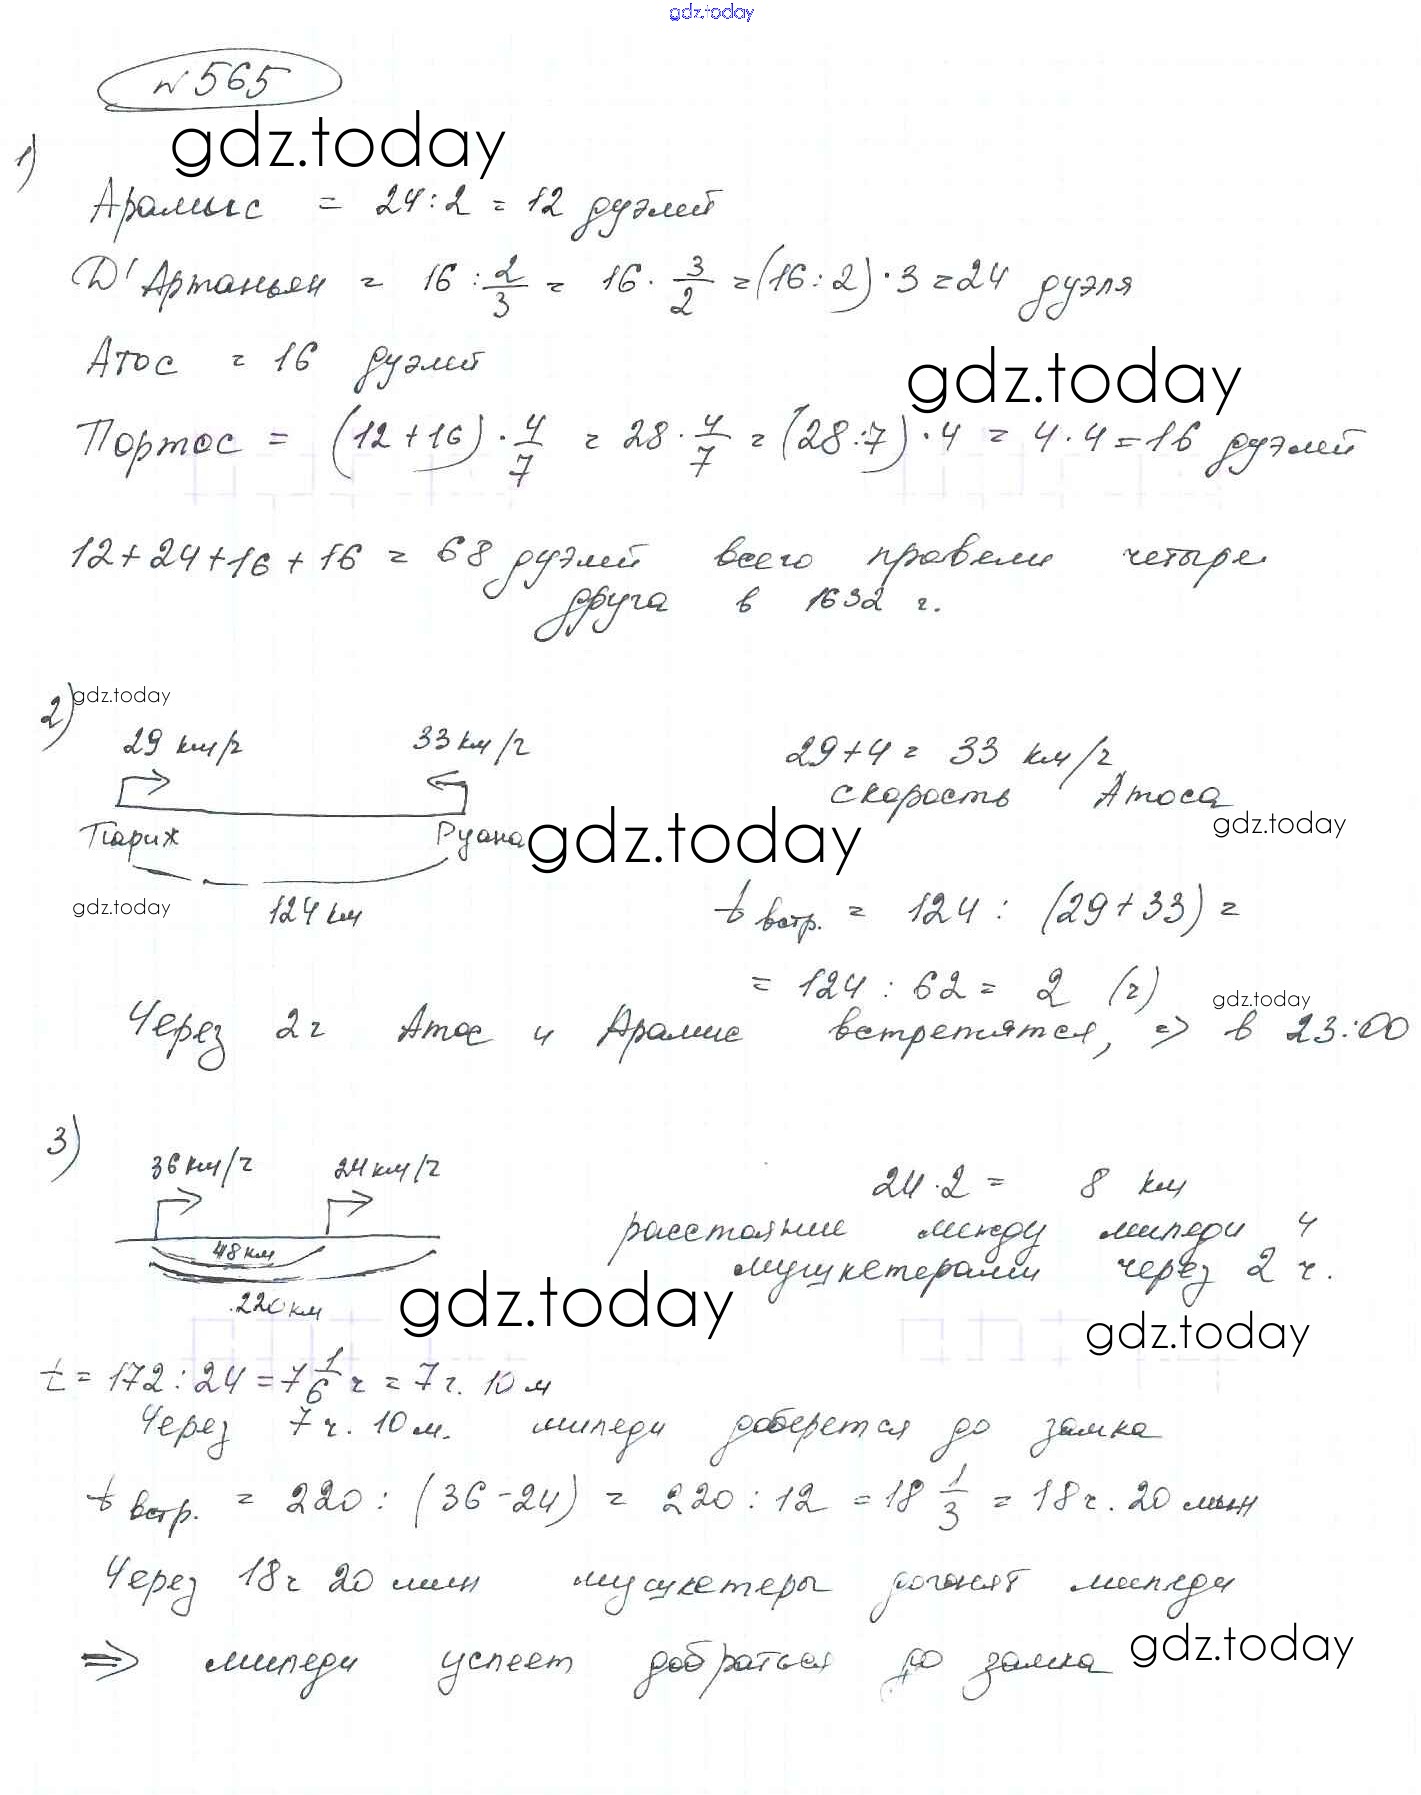 gdz.today
№565
gdz.today
1)
Арамис = 24:2 = 12 дуэлей
Д'Артаньян = 16 : 2/3 = 16 · 3/2 = (16:2)·3 = 24 дуэля
Атос = 16 дуэлей
gdz.today
Портос = (12+16) · 4/7 = 28 · 4/7 = (28:7)·4 = 4·4 = 16 дуэлей
12+24+16+16 = 68 дуэлей всего провели четыре
друга в 1632 г.
2) gdz.today
29 км/ч 33 км/ч 29+4 = 33 км/ч
скорость Атоса
Париж Руана gdz.today gdz.today
gdz.today 124 км t встр. = 124 : (29+33) =
= 124 : 62 = 2 (ч) gdz.today
Через 2ч Атос и Арамис встретятся, => в 23:00
3)
36 км/ч 24 км/ч 24·2 = 8 км
48 км расстояние между миледи и
мушкетерами через 2 ч.
220 км gdz.today gdz.today
t = 172:24 = 7 1/6 ч = 7 ч. 10 м
Через 7 ч. 10 м. миледи доберется до замка
t встр. = 220 : (36-24) = 220 : 12 = 18 1/3 = 18 ч. 20 мин
Через 18ч 20 мин мушкетеры догонят миледи
=> миледи успеет добраться до замка gdz.today